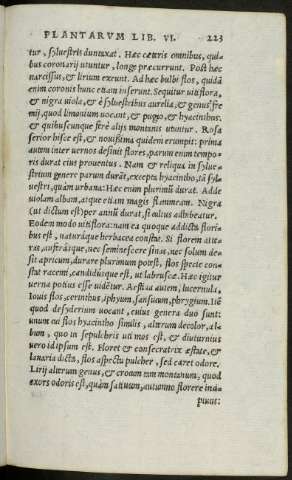 PLANTARVM LIB. VI. 223
tur, sylvestris duntaxat. Hæc cæteris omnibus, qui-
bus coronarij utuntur, longe præcurrunt. Post hæc
narcissus, & lirium exeunt. Ad hæc bulbi flos, quidã
enim coronis hunc etiam inserunt. Sequitur uitiflora,
& nigra uiola, & è syluestribus aurelia, & genus
mij, quod limonium uocant, & pugio, & hyacinthus.
& quibuscunque ferè alijs montanis utuntur. Rosa
serior hisce est, & nouissima quidem erumpit: prima
autem inter uernos desinit flores, parum enim tempo-
ris durat eius prouentus. Nam & reliqua in sylue-
strium genere parum durãt, excepto hyacintho, tã sylu
uestri, quàm urbana: Hæc enim plurimũ durat. Adde
uiolam albam, atque etiam magis flammeam. Nigra
(ut dictum est) per annũ durat, si cultus adhibeatur.
Eodem modo uitiflora: nam ea quoque addicta flori-
bus est, naturáque herbacea constat. Si florem atte-
ras, auferásque, nec seminescere sinas, nec solum de-
sit apricum, durare plurimum potest, flos specie con-
stat racemi, candidúsque est, ut labruscæ. Hæc igitur
uerna potius esse uidẽtur. Aestiua autem, lucernula,
Iouis flos, cerinthus, iphyum, sansucum, phrygium. Itẽ
quod desyderium uocant, cuius genera duo sunt:
unum cui flos hyacintho similis, alterum decolor, al-
bum, quo in sepulchris uti mos est, & diuturnius
uero id ipsum est. Floret & consecratrix æstate, &
lanaria dicta, flos aspectu pulcher, sed caret odore.
Lirij alterum genus, & crocum tum montanum, quod
exors odoris est, quàm satiuum, autumno florere inci-
piunt: